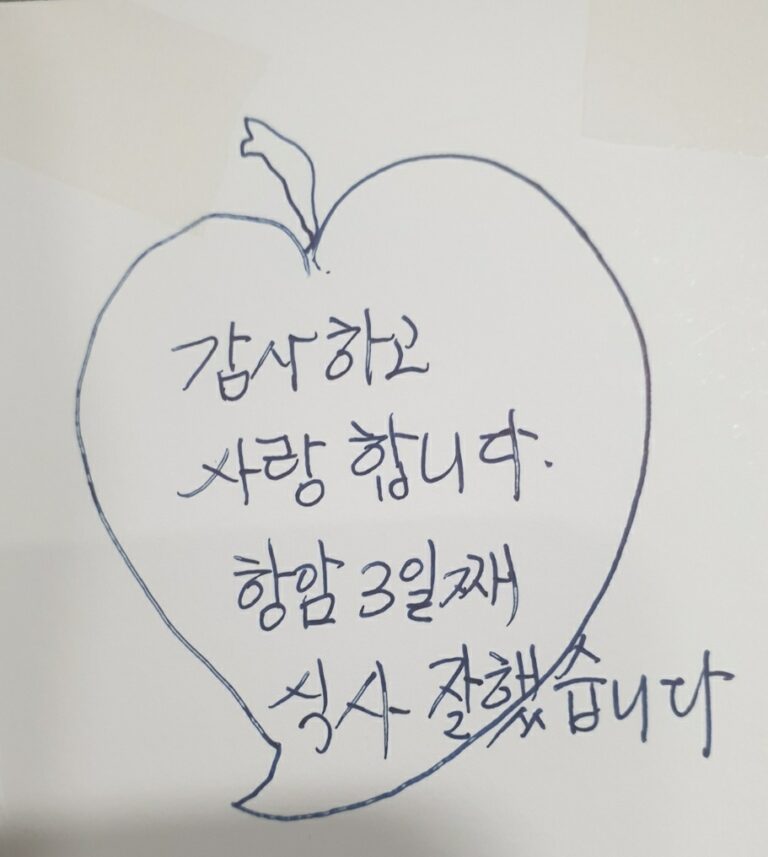 감사하고
사랑합니다.
항암 3일째
식사 잘했습니다